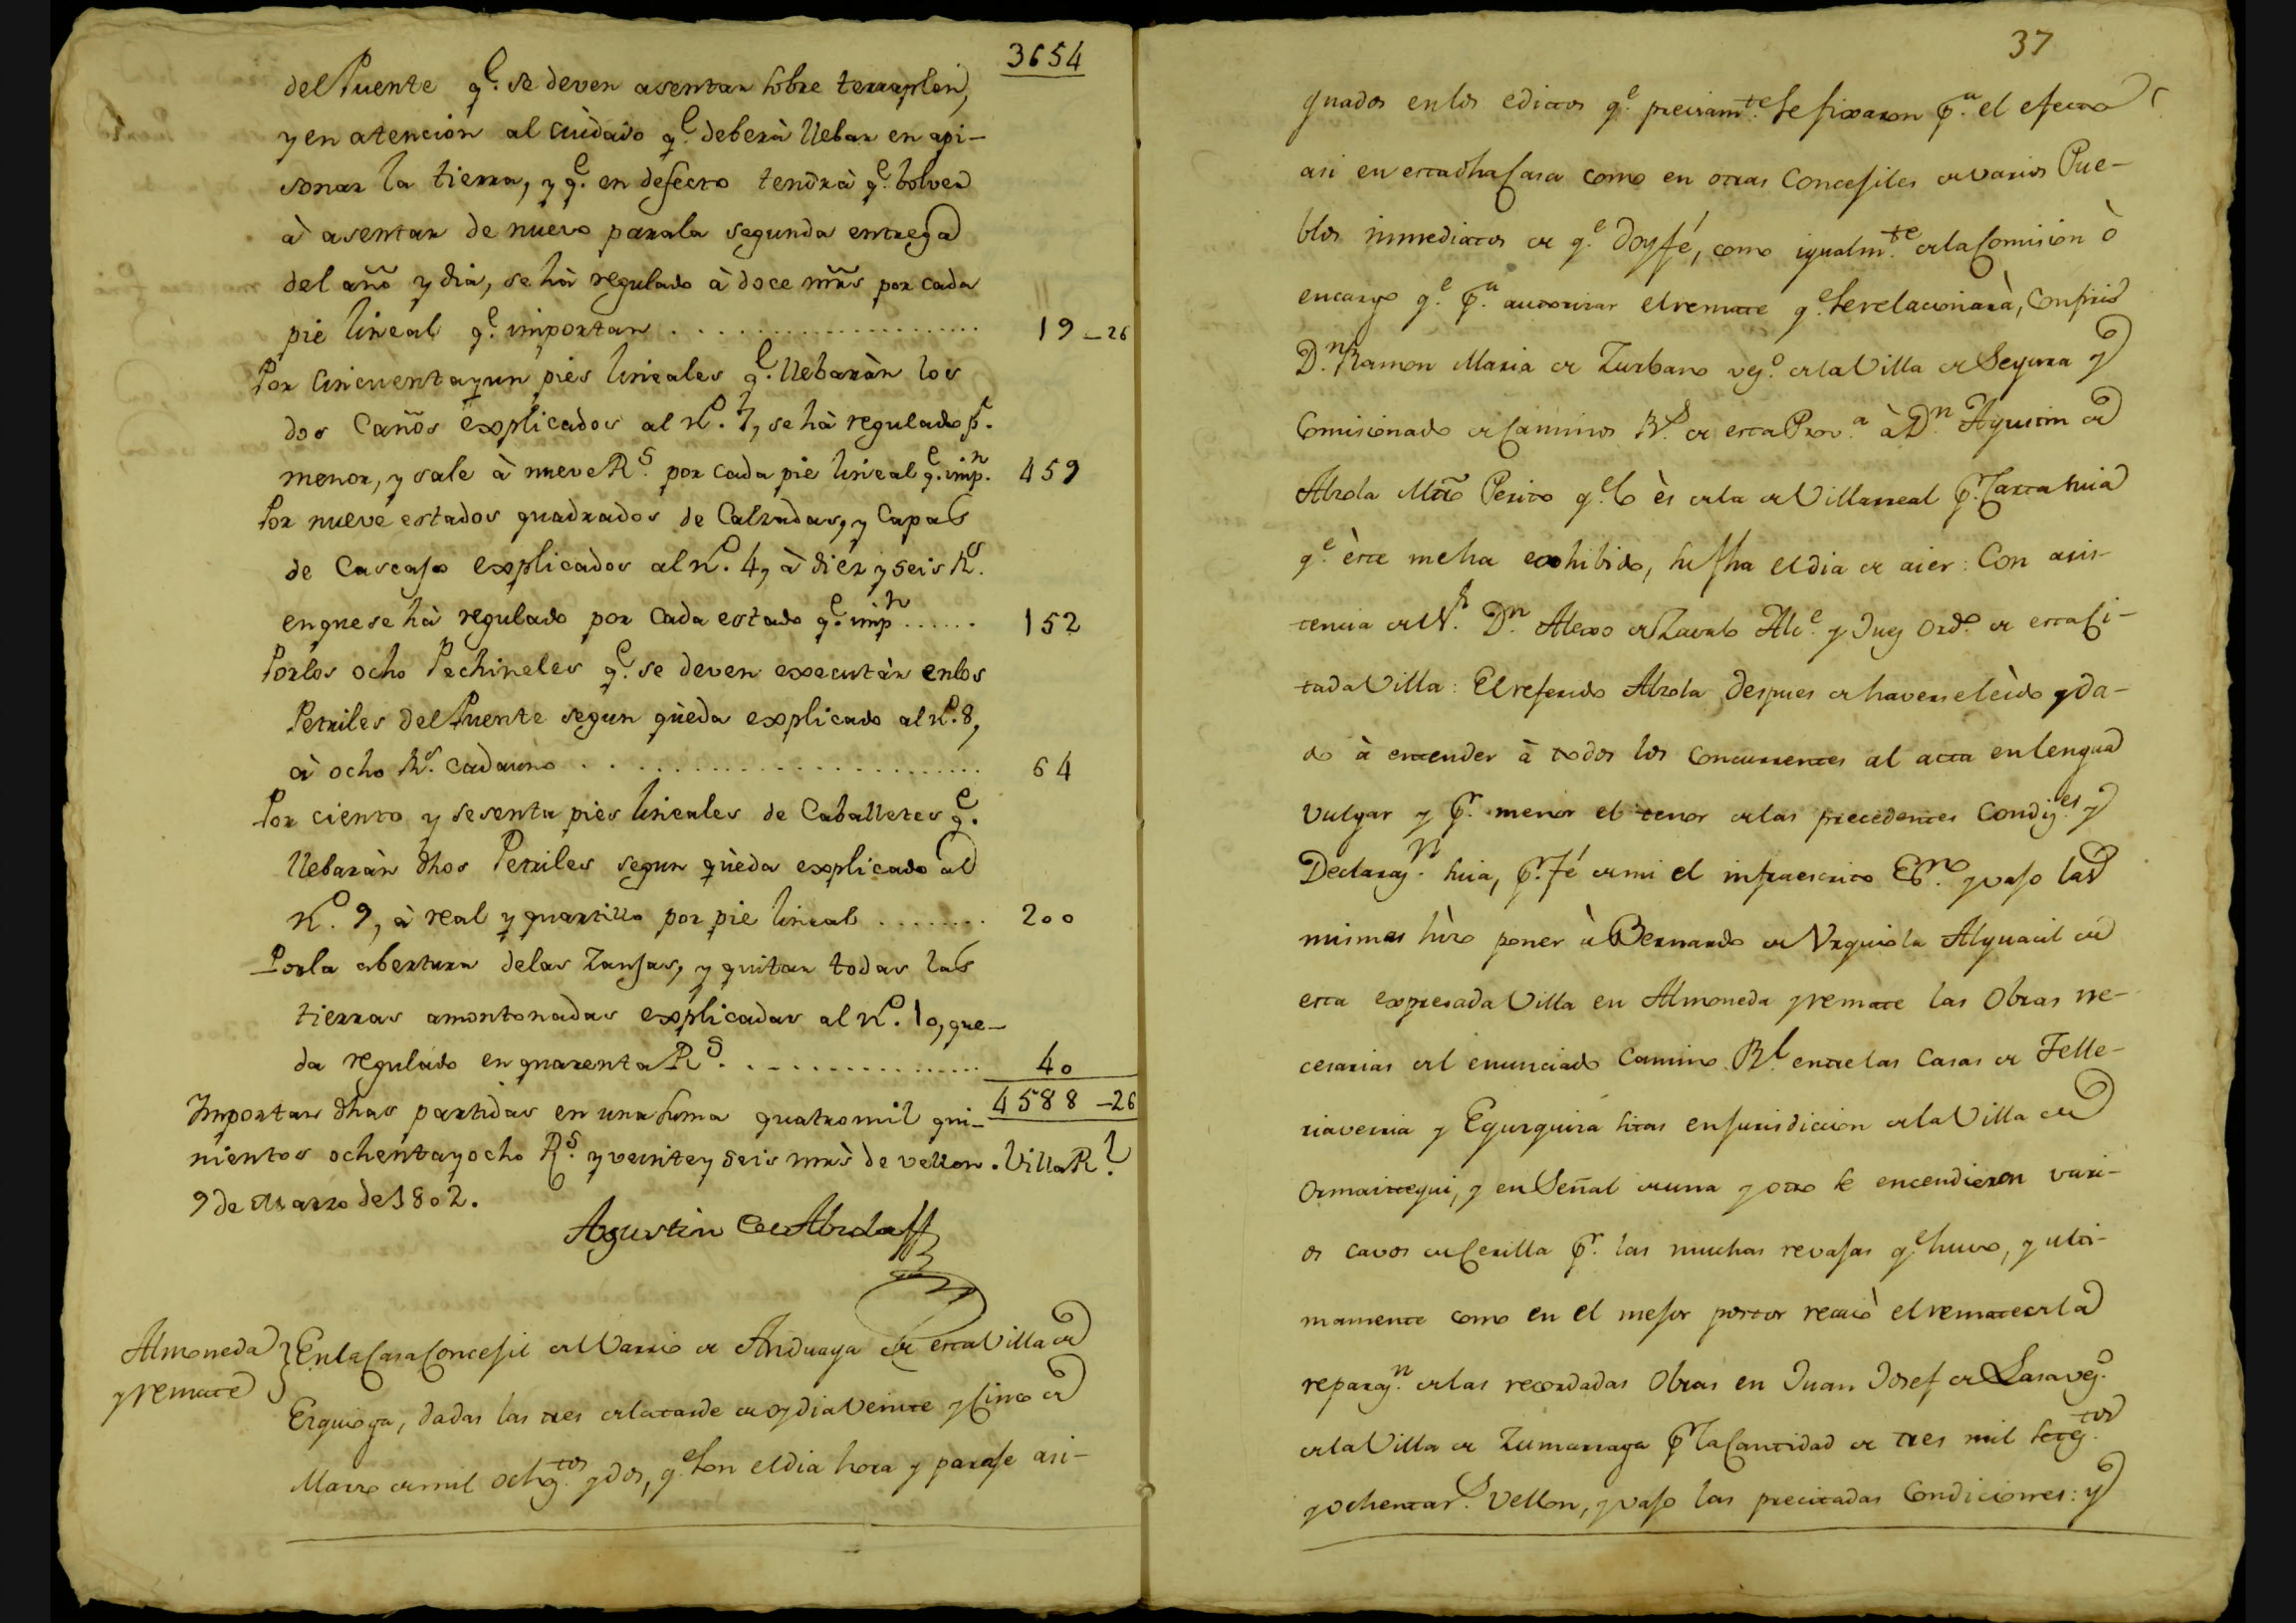 3654
del Puente q.e se deven asentar sobre terraplen,
y en atencion al cuidado q.e deberà llebar en api-
sonar la tierra, y q.e en defecto tendrà q.e bolver
à asentar de nuevo para la segunda entrega
del año y dia, se hà regulado à doce mrs por cada
pie lineal q.e importan . . . . . . . . . . 19 - 26
Por cincuenta y un pies lineales q.e llebaràn los
dos Caños explicados al N.o 7, se hà regulado p.r
menor, y sale à nueve R.s por cada pie lineal q.e imp.n 459
Por nueve estados quadrados de Calzadas, y Capas
de Cascajo explicados al N.o 4, à diez y seis R.s
en que se hà regulado por cada estado q.e imp.n ...... 152
Por los ocho Pechineles q.e se deven executàr en los
Petriles del Puente segun queda explicado al N.o 8,
à ocho R.s cada uno . . . . . . . . . . 64
Por ciento y sesenta pies lineales de Caballetes q.e
llebaràn dhos Petriles segun queda explicado al
N.o 9, à real y quartillo por pie lineal ........ 200
Por la abertura de las Zanjas, y quitar todas las
tierras amontonadas explicadas al N.o 10, que-
da regulado en quarenta R.s . . . . . . . . 40
4588 - 26
Importan dhas partidas en una suma quatro mil qui-
nientos ochenta y ocho R.s y veinte y seis mrs de vellon. Villa R.l
9 de Marzo de 1802.
Agustin de Abrola
Almoneda
y remate
} En la Casa Concejil del Varrio de Anduaga de esta Villa de
Ezquioga, dadas las tres de la tarde de oy dia Veinte y Cinco de
Marzo de mil ochg.tos y dos, q.e son el dia hora y paraje asi-
37
gnados en los edictos q.e previam.te se fixaron p.a el efecto
asi en esta dha Casa como en otras Concejiles de varios Pue-
blos inmediatos de q.e doy fé, como igualm.te de la Comision ò
encargo q.e p.a autorizar el remate q.e se relacionarà, confirió
D.n Ramon Maria de Zurbano vez.o de la Villa de Segura y
Comisionado de Caminos R.s de esta Prov.a à D.n Agustin de
Abrola Mro Perito q.e lo ès de la de Villarreal p.r Carta suia
q.e èste me ha exhibido, su fha el dia de aier: Con asis-
tencia del S.r D.n Alexo de Zavalo Alc.e y Juez Ord.o de esta Ci-
tada Villa: El referido Abrola despues de haverse leìdo y da-
do à entender à todos los concurrentes al acta en lengua
vulgar y p.r menor el tenor de las precedentes Condiz.es y
Declaraz.n suia, p.r fé de mi el infraescrito Es.no y vajo las
mismas hizo poner à Bernardo de Urquiola Alguacil de
esta expresada Villa en Almoneda y remate las Obras ne-
cesarias del enunciado Camino R.l entre las Casas de Telle-
riaverria y Egurquiza sitas en jurisdicion de la Villa de
Ormaiztegui, y en Señal de una y otro se encendieron vari-
os cavos de Cerilla p.r las muchas revajas q.e huvo, y ulti-
mamente como en el mejor postor recaiò el remate de la
reparaz.n de las recordadas Obras en Juan Josef de Lasa vez.o
de la Villa de Zumarraga p.r la Cantidad de tres mil setez.tos
y ochenta r.s vellon, y vajo las precitadas Condiciones: y